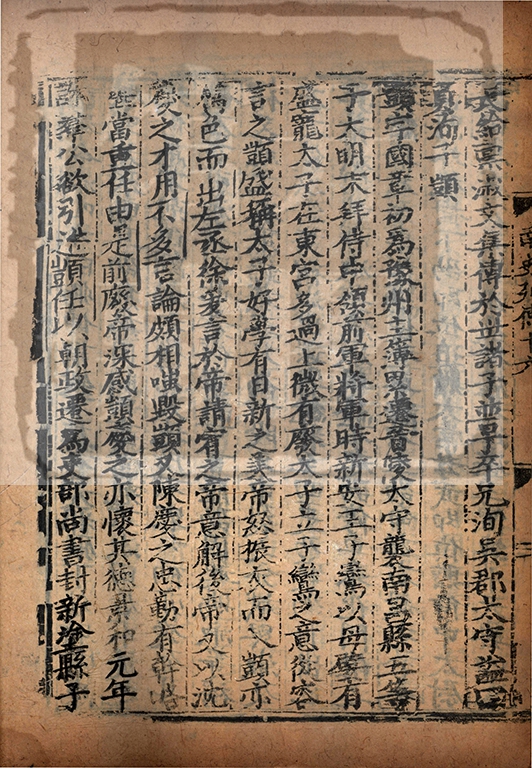 文集傳於世諸子並早卒兄洵吳郡太守謚曰
貞洵子顗
顗字國章初爲豫州主簿累遷晉陵太守襲南昌縣五等
子大明末拜侍中領前軍將軍時新安王子鸞以母嬖有
盛寵太子在東宮多過上微有廢太子立子鸞之意從容
言之顗盛稱太子好學有日新之美帝怒振衣而入顗亦
厲色而出左丞徐爰言於帝請宥之帝意解後帝又以沈
慶之才用不多言論頗相嗤毀顗又陳慶之忠勤有幹略
堪當重任由是前廢帝深感顗慶之亦懷其德景和元年
誅羣公欲引進顗任以朝政遷爲吏部尚書封新塗縣子